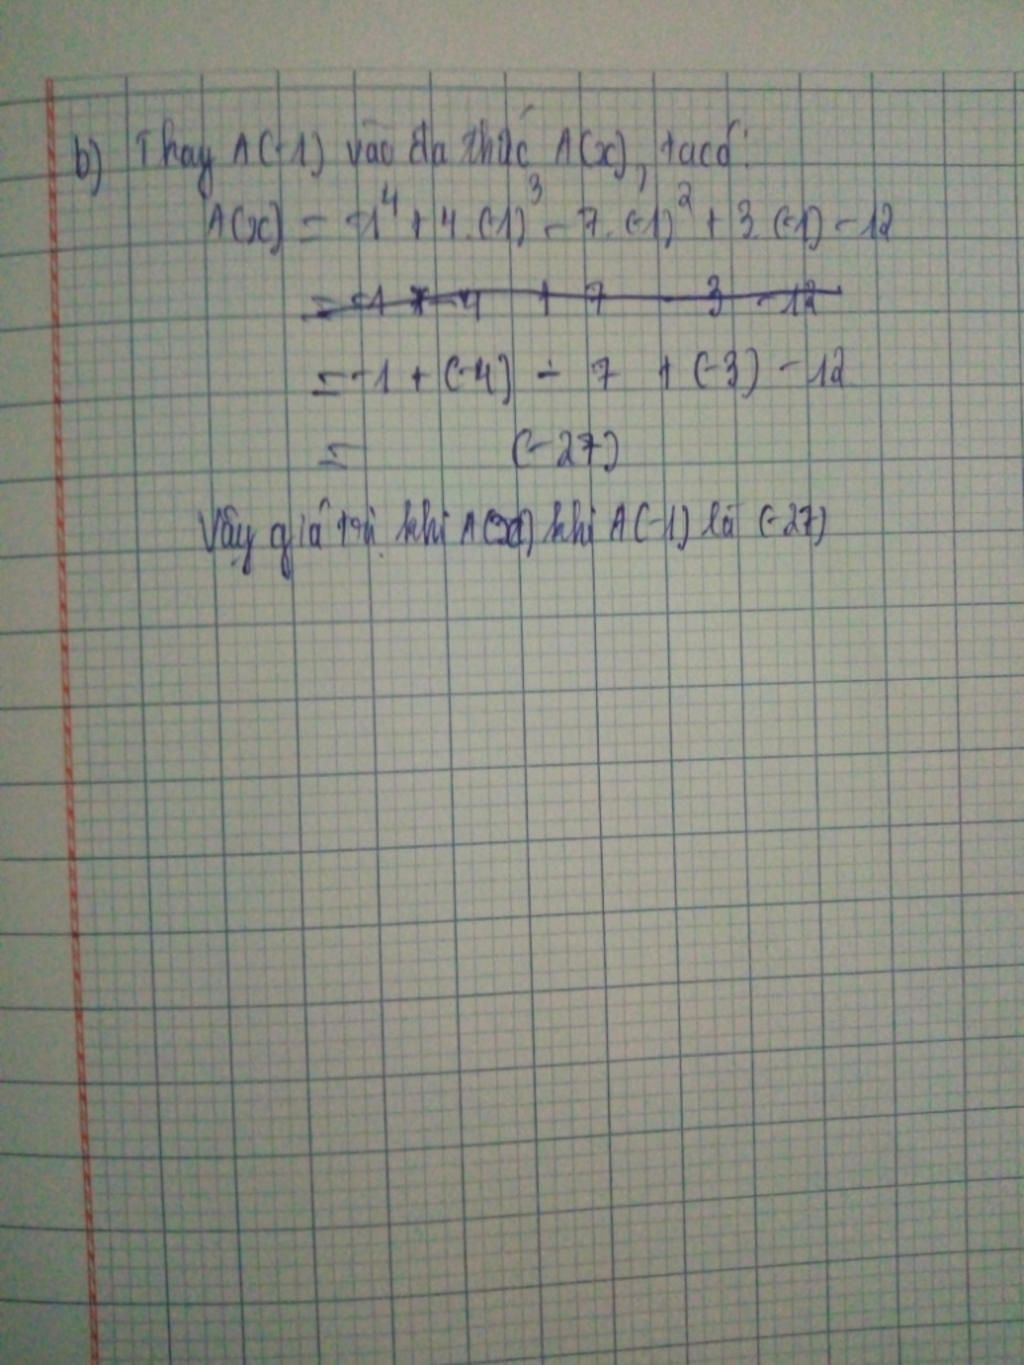 b) Thay A(-1) vào đa thức A(x), ta có:
A(x) = -1⁴ + 4.(-1)³ - 7.(-1)² + 3.(-1) - 12
= -1 + -4 + 7 - 3 - 12
= -1 + (-4) - 7 + (-3) - 12
= (-27)
Vậy giá trị khi A(x) khi A(-1) là (-27)